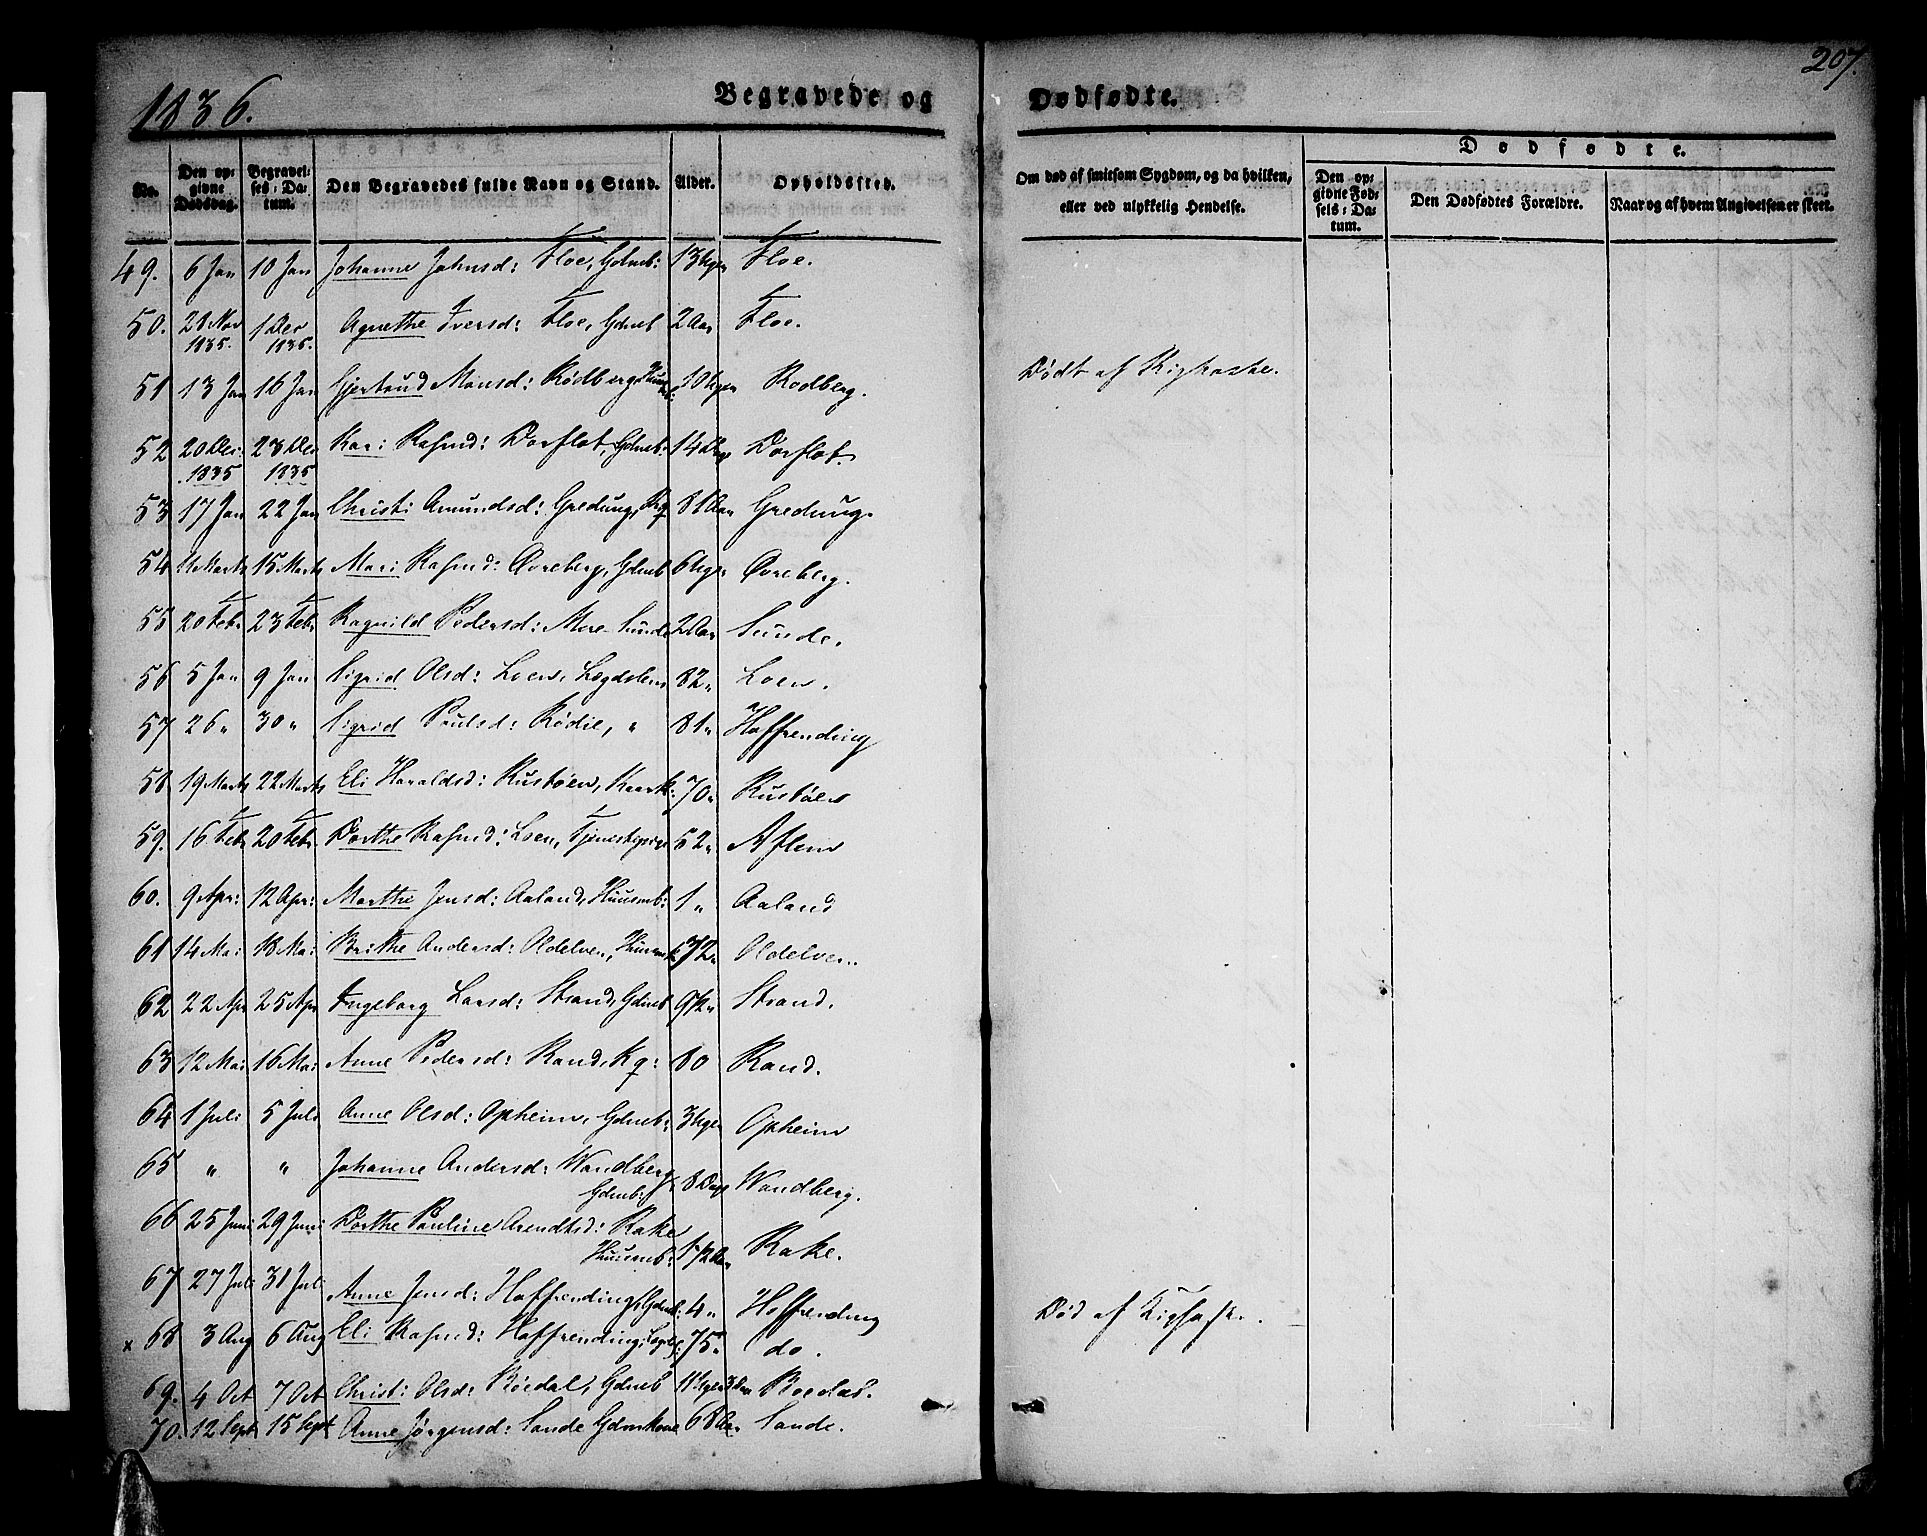 207.
1836.
Begravede og Dødfødte.
No.
Den opgivne Dødsdag.
Begravelses-Datum.
Den Begravedes fulde Navn og Stand.
Alder.
Opholdssted.
Om død af smitsom Sygdom, og da hvilken, eller ved ulykkelig Hendelse.
Dødfødte.
Den opgivne Fødsels-Datum.
Den Dødfødtes Forældre.
Naar og af hvem Angivelsen er skeet.
49. 6 Jan 10 Jan Johanne Johnsd: Floe, Gdmb: 13 Uger Floe.
50. 28 Nov 1835. 1 Dec 1835. Agnethe Iversd: Floe, Gdmb 2 Aar Floe.
51 13 Jan 16 Jan Gjertrud Monsd: Rødberg, 10 Uger Rodberg. Dødt af
52 20 Dec: 1835 23 Dec 1835 Kari Rasmd: Dorflot, Gdmb: 14 Dage Dorflot.
53 17 Jan 22 Jan Christi Amundsd: Gredung, 81 Aar Gredung.
54 11 Marts 15 Marts Mari Rasmd: Øvreberg, Gdmb 6 Uger Øvreberg.
55 20 Febr 23 Febr Ragnild Pedersd: Sunde 2 Aar Sunde.
56 5 Jan 9 Jan Sigrid Olsd: Loen, Lægdslem 82 " Loen.
57 26 " 30 " Sigrid Paulsd: Rødie, " 81 " Hoffrending
58 19 Marts 22 Marts Eli Haraldsd: Rustøen, 70 " Rustøen
59. 16 Febr 20 Febr Dorthe Rasmd: Loen, Tjenestepige 52 " Aflem
60. 9 Apr: 12 Apr: Marthe Jensd: Aaland, Huusmb: 1 " Aaland
61 14 Mai 18 Mai Brithe Andersd: Oldelven, 72 " Oldelven.
62 22 Apr 25 Apr Ingeborg Larsd: Strand, Gdmb 9/12 " Strand.
63 12 Mai 16 Mai Anne Pedersd: Rand, Kg: 80 Rand.
64 1 Juli 5 Juli Anne Olsd: Opheim, Gdmb: 3 Uger Opheim
65 " " Johanne Andersd: Wandberg Gdmb: 8 Dage Wandberg.
66 25 Juni 29 Juni Dorthe Pauline Arendtsd: Rake Huusmb: Rake.
67 27 Juli 31 Juli Anne Jensd: Hoffrending, Gdmb: 4 " Hoffrending Død af
x 68 3 Aug 6 Aug Eli Rasmd: Hoffrending, 75 " do.
69. 4 Oct 7 Oct Christi Olsd: Bøedal, Gdmb 11 Uger Boedal.
70. 12 Sept 15 Sept Anne Jørgensd: Sande Gdmkone 68 Aar Sande.